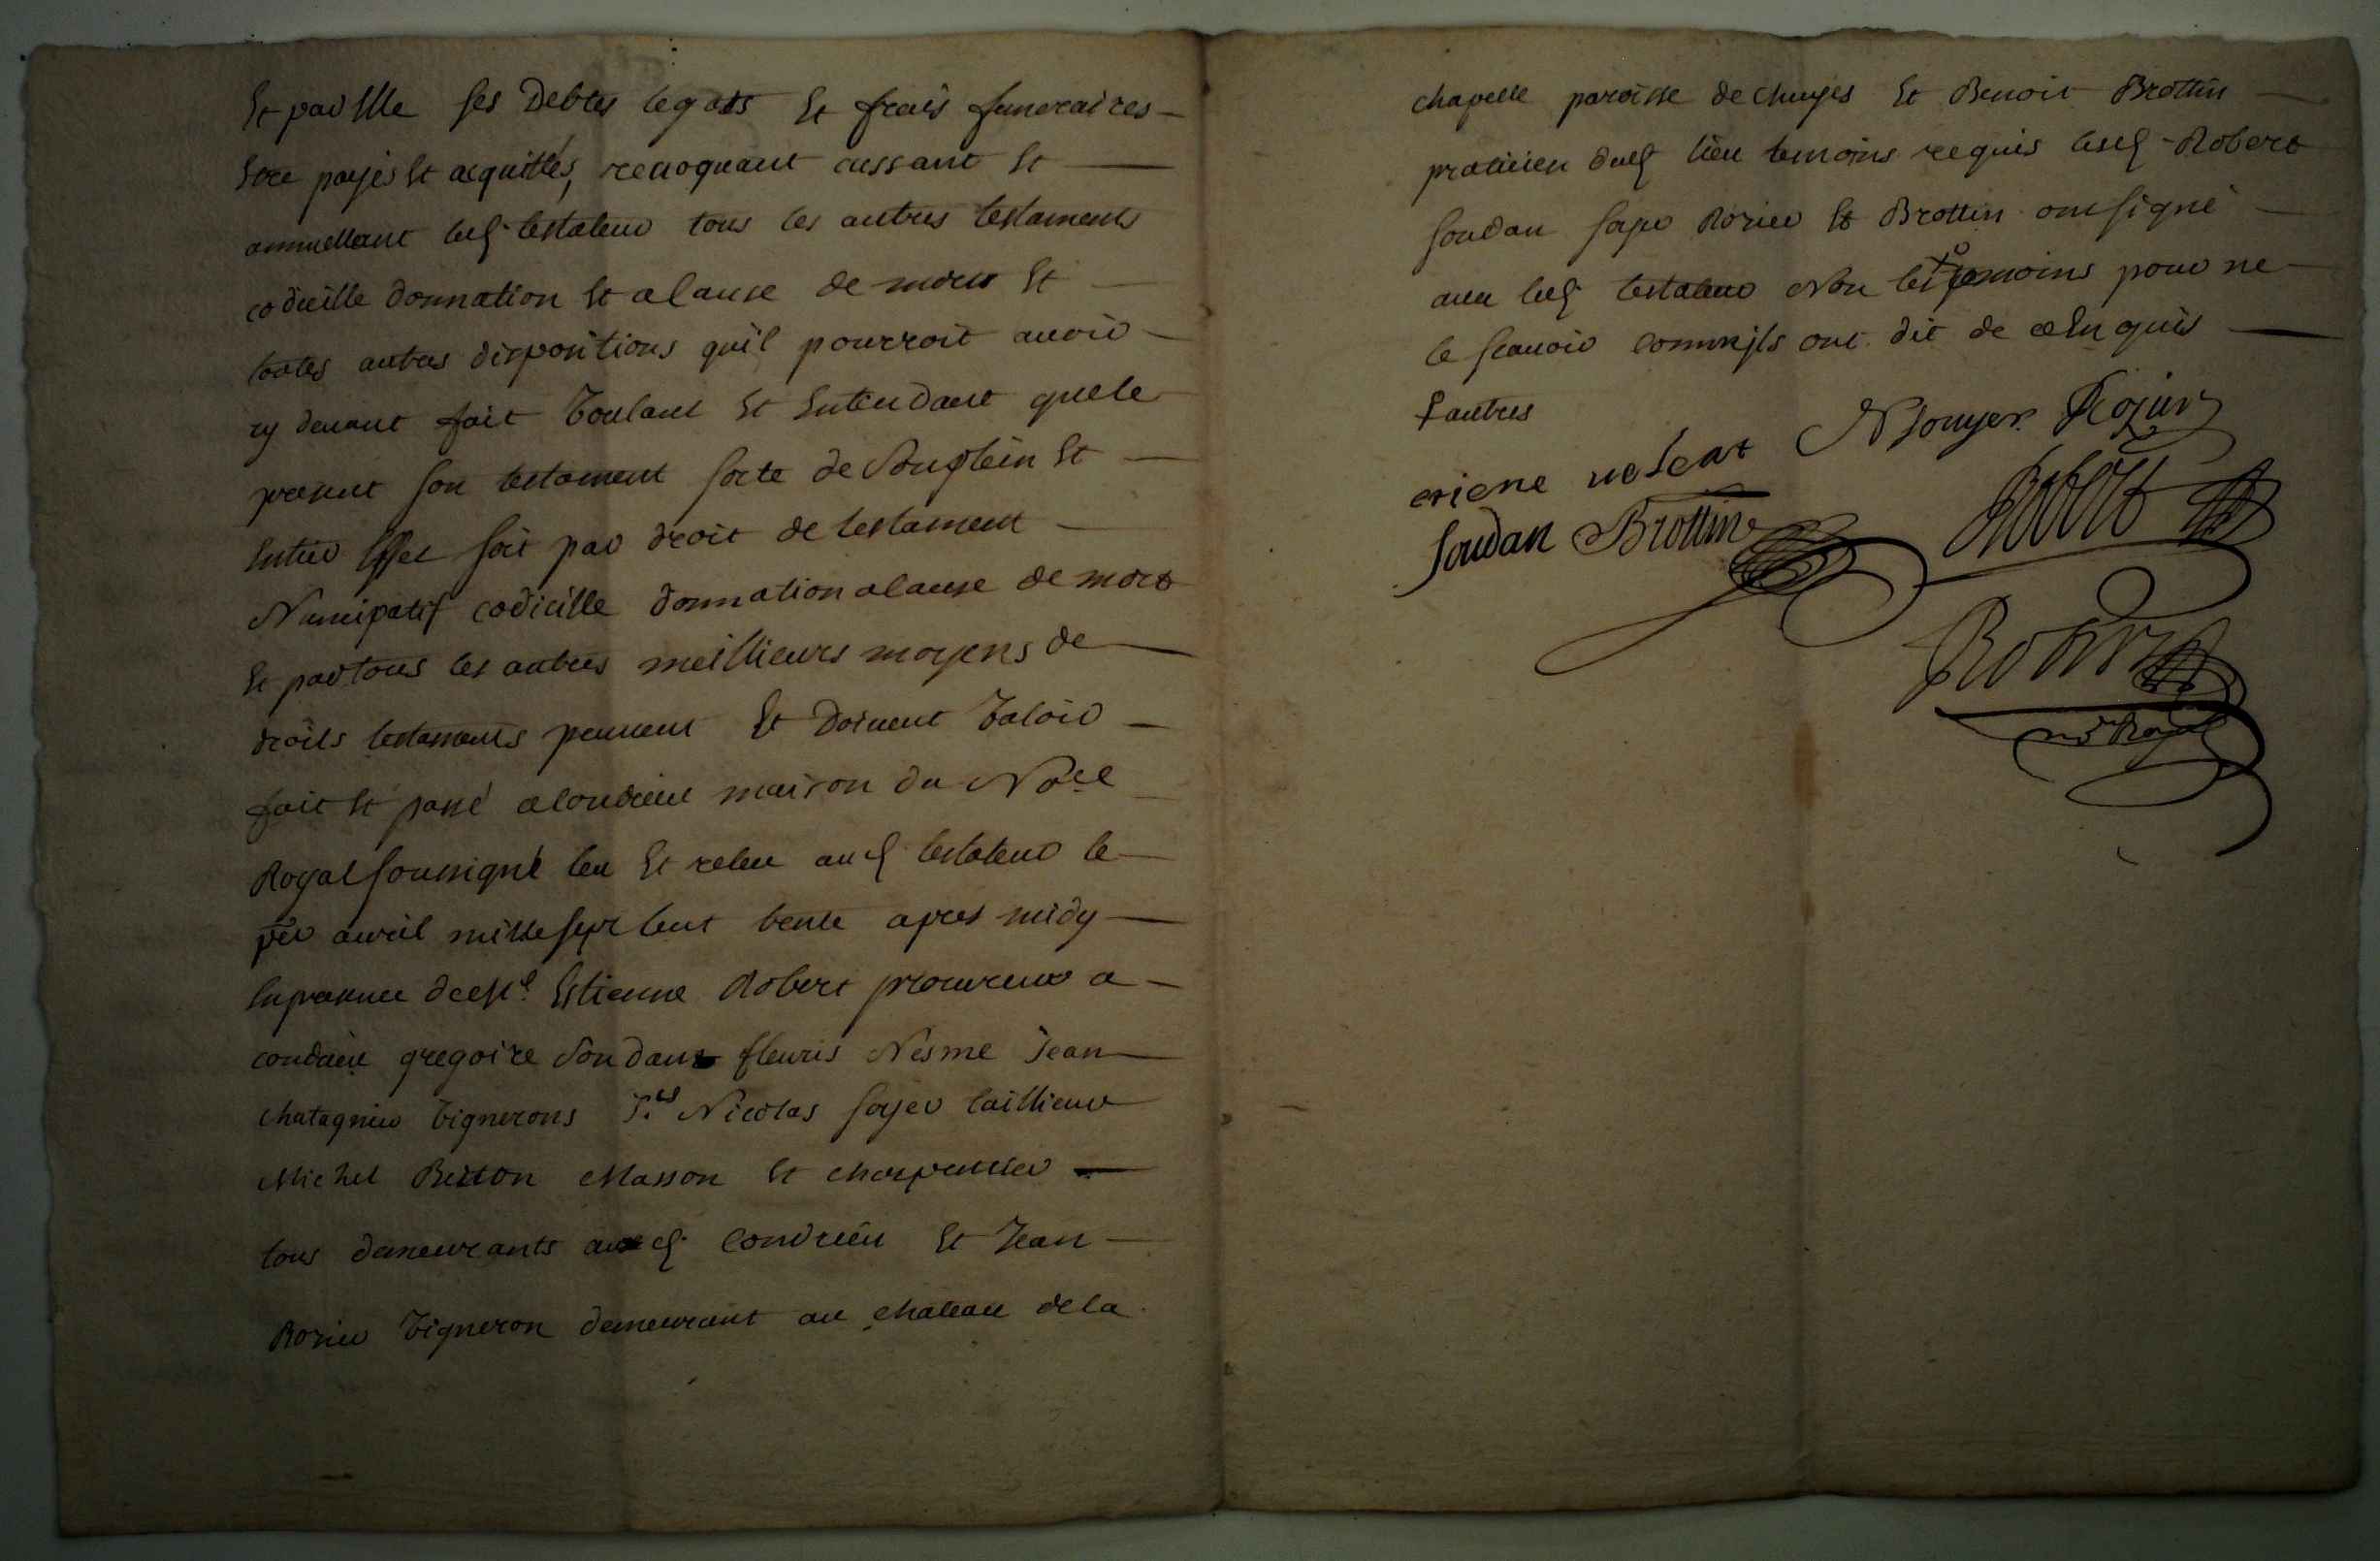 Et par Elle ses Debtes legats Et frais funeraires
Etre payés Et acquittés, revoquant cassant Et
annullant led. testateur tous les autres testaments
codicille donnation Et a Cause de mort Et
toutes autres dispositions quil pourroit avoir
cy devant fait Voulant Et Entendant que le
present son testament sorte de Son plein Et
Entier Effet soit par droit de testament
Nuncipatif codicille donnation a Cause de mort
Et par tous les autres meillieurs moyens de
droits testaments peuvent Et Doivent Valoir
fait Et passé a Condrieu maison du No.re
Royal soussigné leu Et releu aud. testateur le
per avril mille sept Cent trente apres midy
En presence de Estienne Robert procureur a
condrieu gregoire Soudan fleuris Nesme Jean
Chatagnier Vignerons Nicolas soyer taillieur
Michel Beston Masson Et Charpentier
tous demeurants aud. Condrieu Et Jean
Rozier Vigneron demeurant au chateau de la
chapelle paroisse de Chuyes Et Benoit Brottin
praticien dud. lieu temoins requis lesd. Robert
Soudan soyer Rozier Et Brottin ont signé
avec led. testateur Non les temoins pour ne
le scavoir comm'ils ont dit de ce Enquis
autres
N Souyer Rojier
Soudan Brottin Robert
no Royal